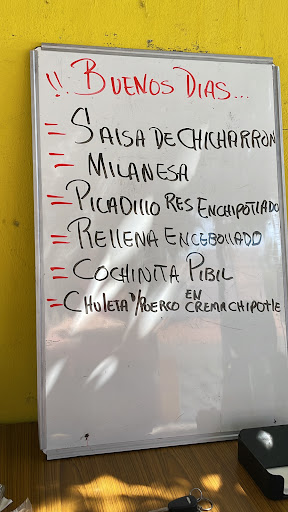 ¡¡ BUENOS DIAS...
= SALSA DE CHICHARRON
= MILANESA
= PICADILLO RES ENCHIPOTLADO
= RELLENA ENCEBOLLADO
= COCHINITA PIBIL
= CHULETA D/PUERCO EN CREMA CHIPOTLE